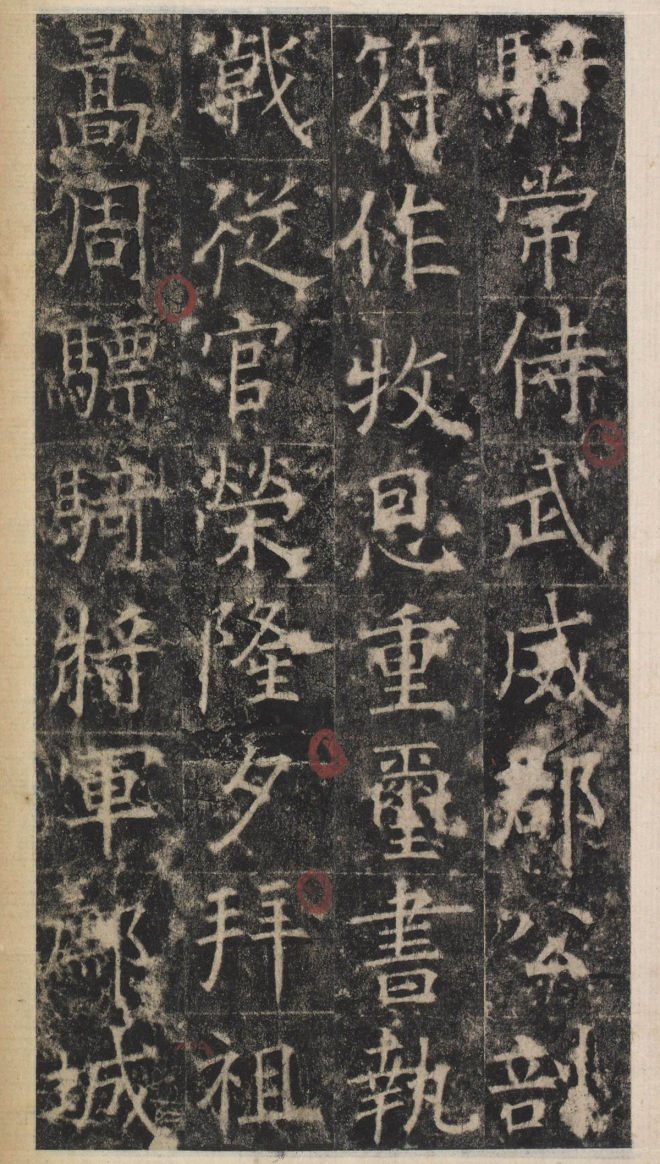 騎常侍武威郡公剖
符作牧恩重璽書執
戟從官榮隆夕拜祖
暠周驃騎將軍鄜城